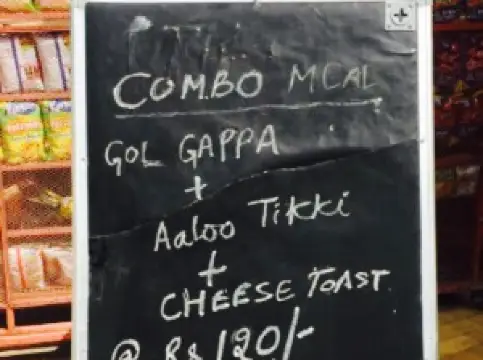 COMBO MEAL
GOL GAPPA
+
Aaloo Tikki
+
CHEESE TOAST
@ Rs 120/-